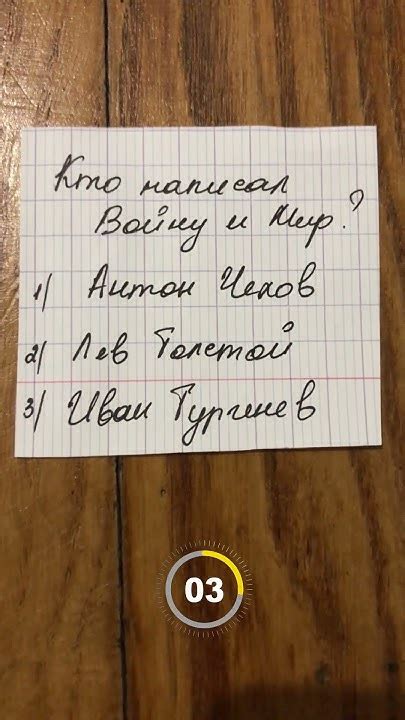 Кто написал
Войну и Мир?
1) Антон Чехов
2) Лев Толстой
3) Иван Тургинев
03